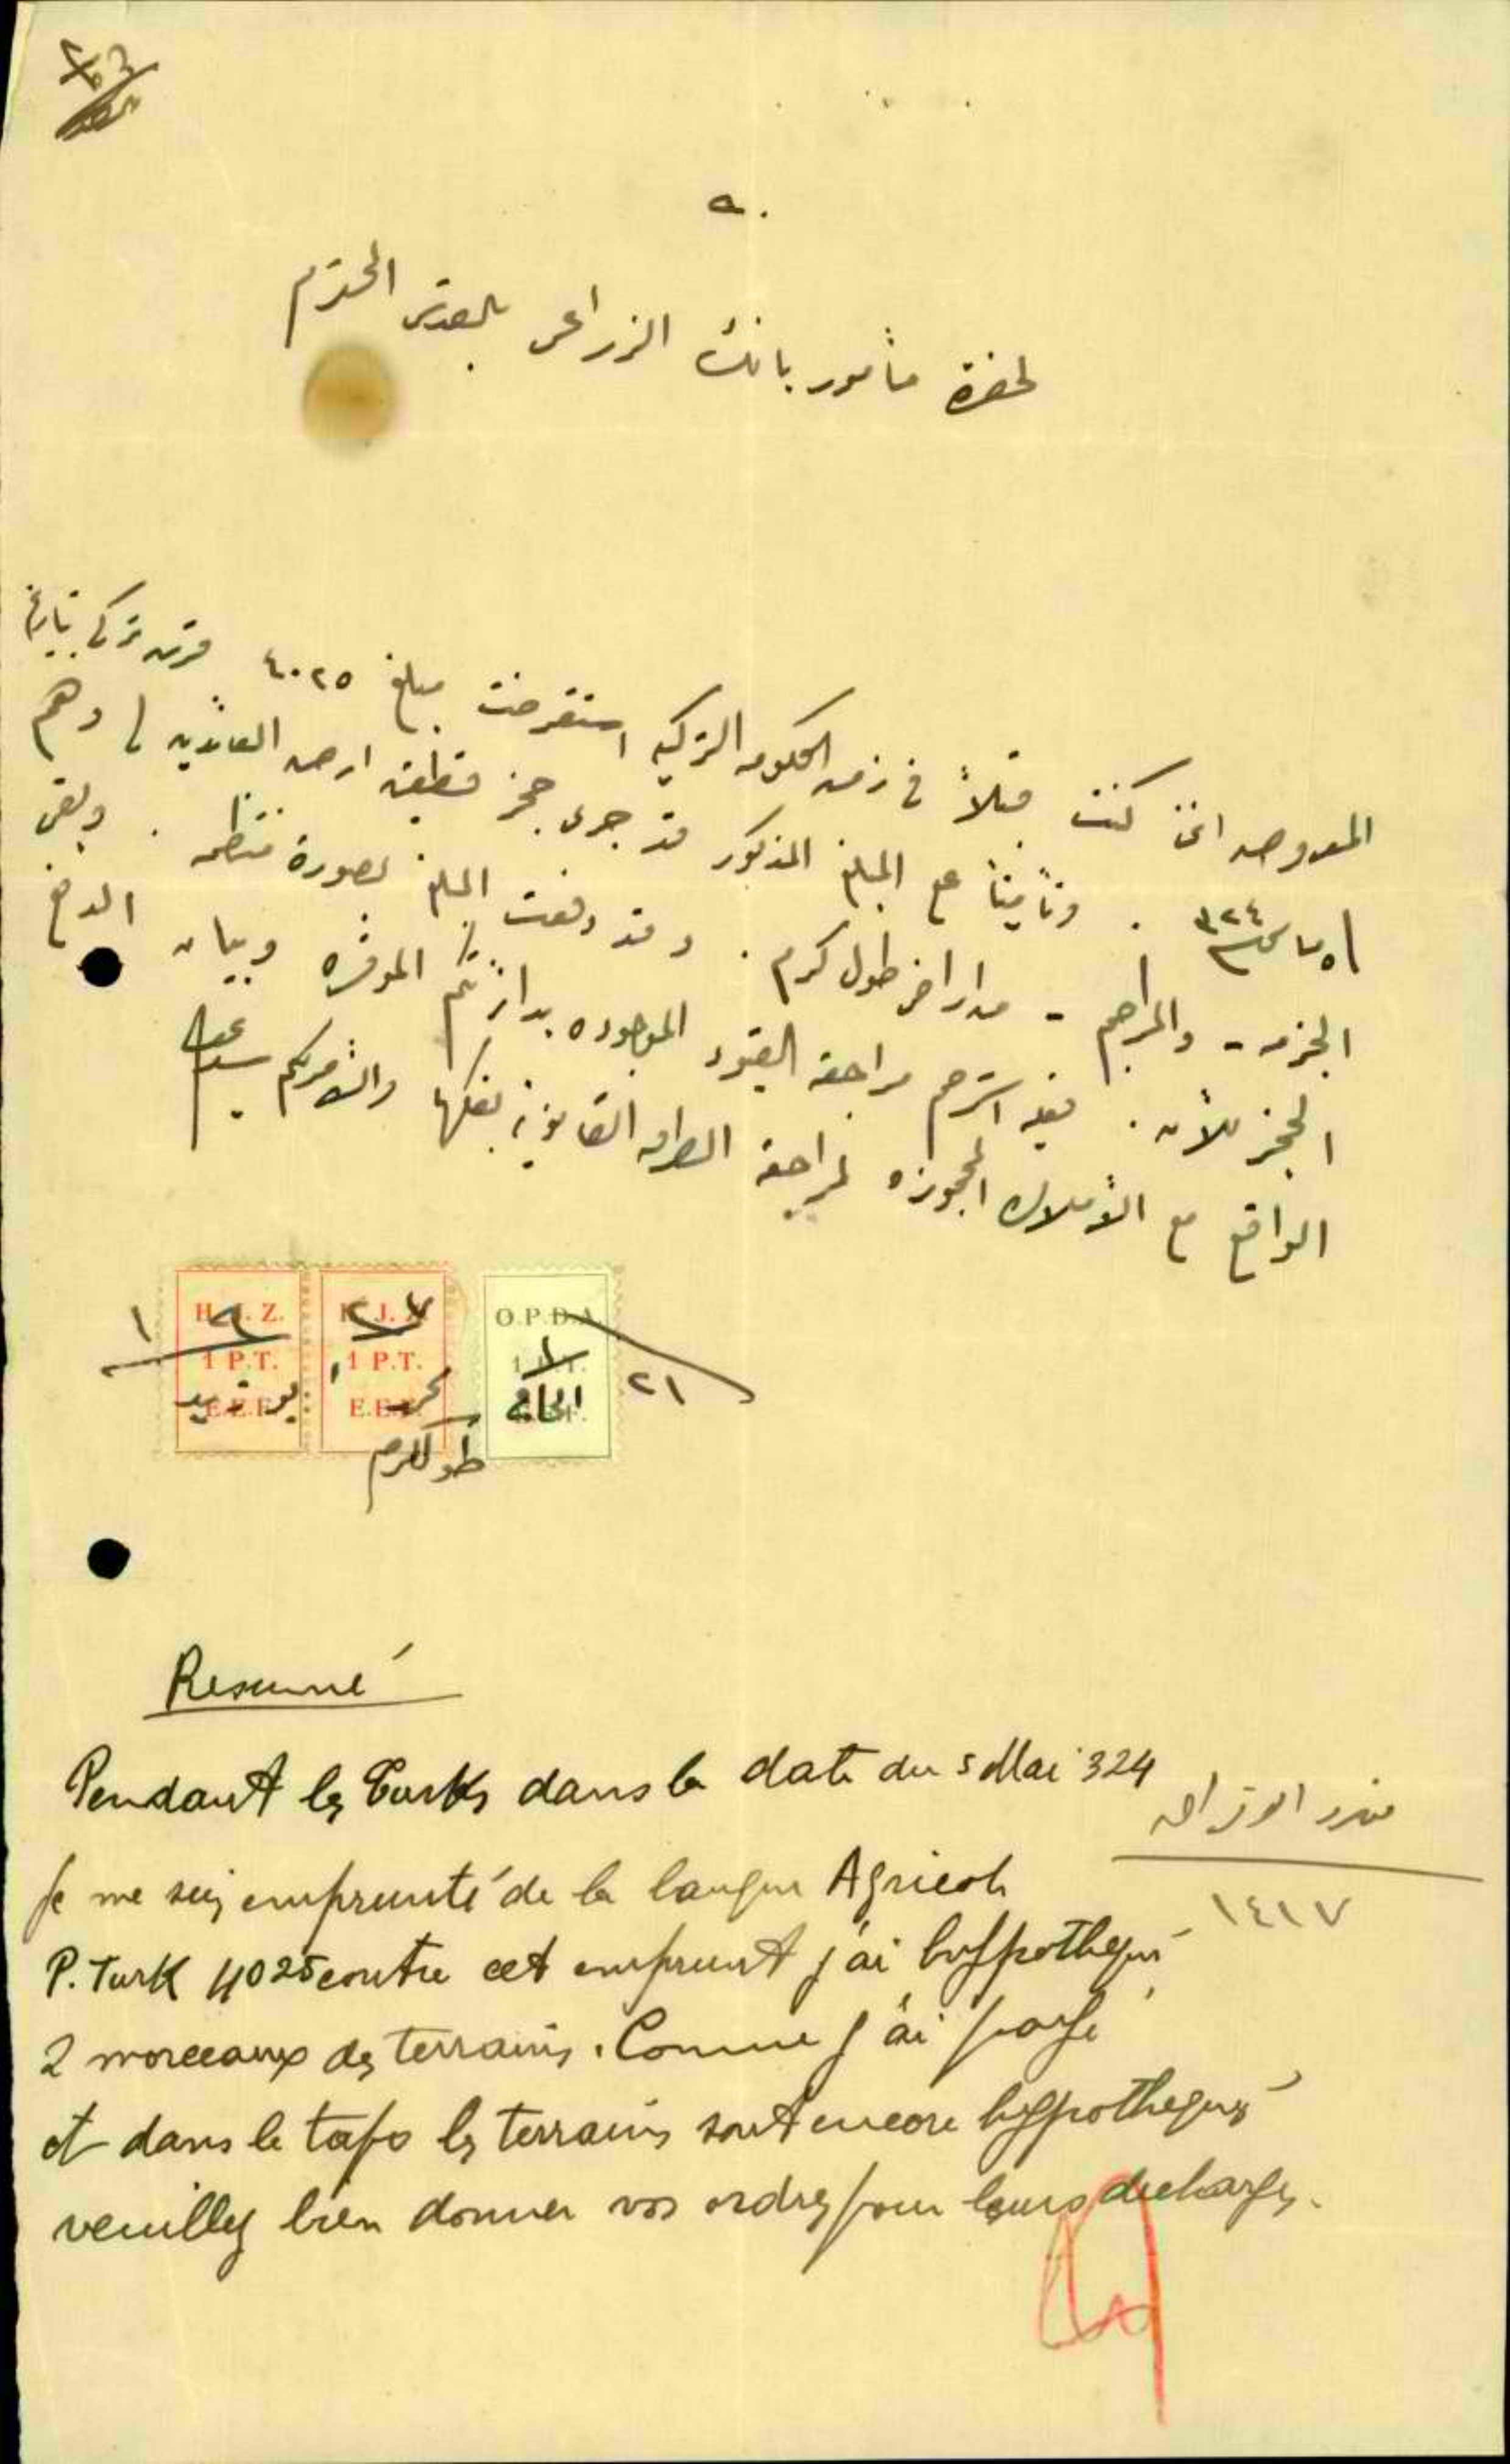 لحضرة مأمور بانك الزراعي بالقدس المحترم
المعروض انني كنت قبلاً في زمن الحكومه التركيه استقرضت مبلغ ٤٠٢٥ قرش تركي بتاريخ
٥ مايس ٣٢٤ . وتأميناً على المبلغ المذكور قد جرى حجز قطعتي ارض العائدين لي وهم
الجزمه - والمراحم - من اراضي طول كرم . وقد دفعت المبلغ بصورة منتظمه . وبقي
الحجز للأن . فبه استرحم مراجعة القيود الموجوده بدائرتكم الموقره وبيان الدفع
الواقع مع الأملاك المحجوزه لمراجعة القانونيه بفكها والأمر لكم سيدي
H.J.Z.
1 P.T.
E.E.F.
H.J.Z.
1 P.T.
E.E.F.
O.P.D.A.
1 P.T.
طولكرم
٢١
Resumé
Pendant les Turks dans la date du 5 Mai 324
je me suis emprunté de la banque Agricole
P. Turk 4025 contre cet emprunt j'ai hyppothequé
2 morceaux des terrains. Comme j'ai payé
et dans le tapo les terrains sont encore hyppothequés
veuillez bien donner vos ordres pour leurs decharges.
١٤١٧